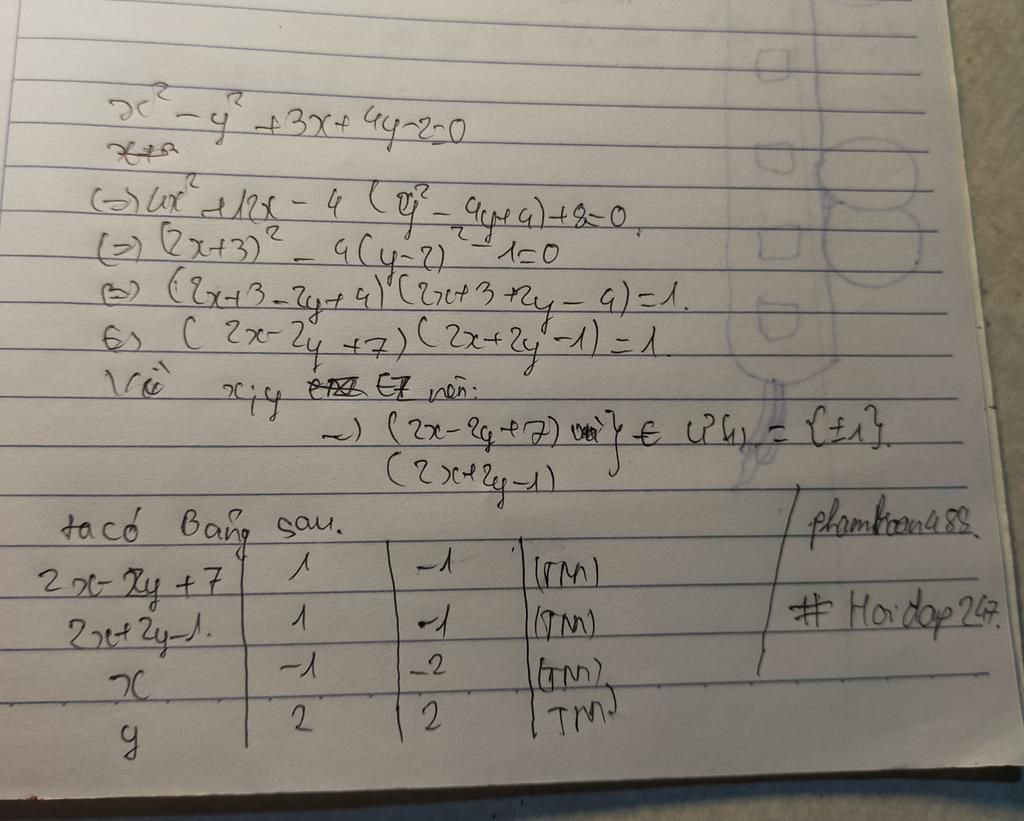 x² - y² + 3x + 4y - 2 = 0
(=) 4x² + 12x - 4 (y² - 4y + 4) + 8 = 0.
(=) (2x+3)² - 4(y-2)² - 1 = 0
(=) (2x+3-2y+4) (2x+3+2y-4) = 1.
(=) (2x-2y+7)(2x+2y-1) = 1.
Vì x;y ∈ Z nên:
(2x-2y+7) } ∈ Ư(1) = {±1}.
(2x+2y-1)
ta có Bảng sau.
2x-2y+7 1 -1 (TM)
2x+2y-1. 1 -1 (TM)
x -1 -2 (TM)
y 2 2 (TM)
# Hoidap247.